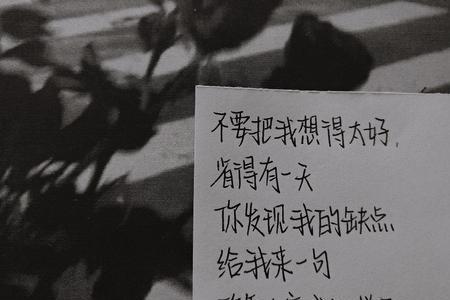 不要把我想得太好,
省得有一天
你发现我的缺点
给我来一句